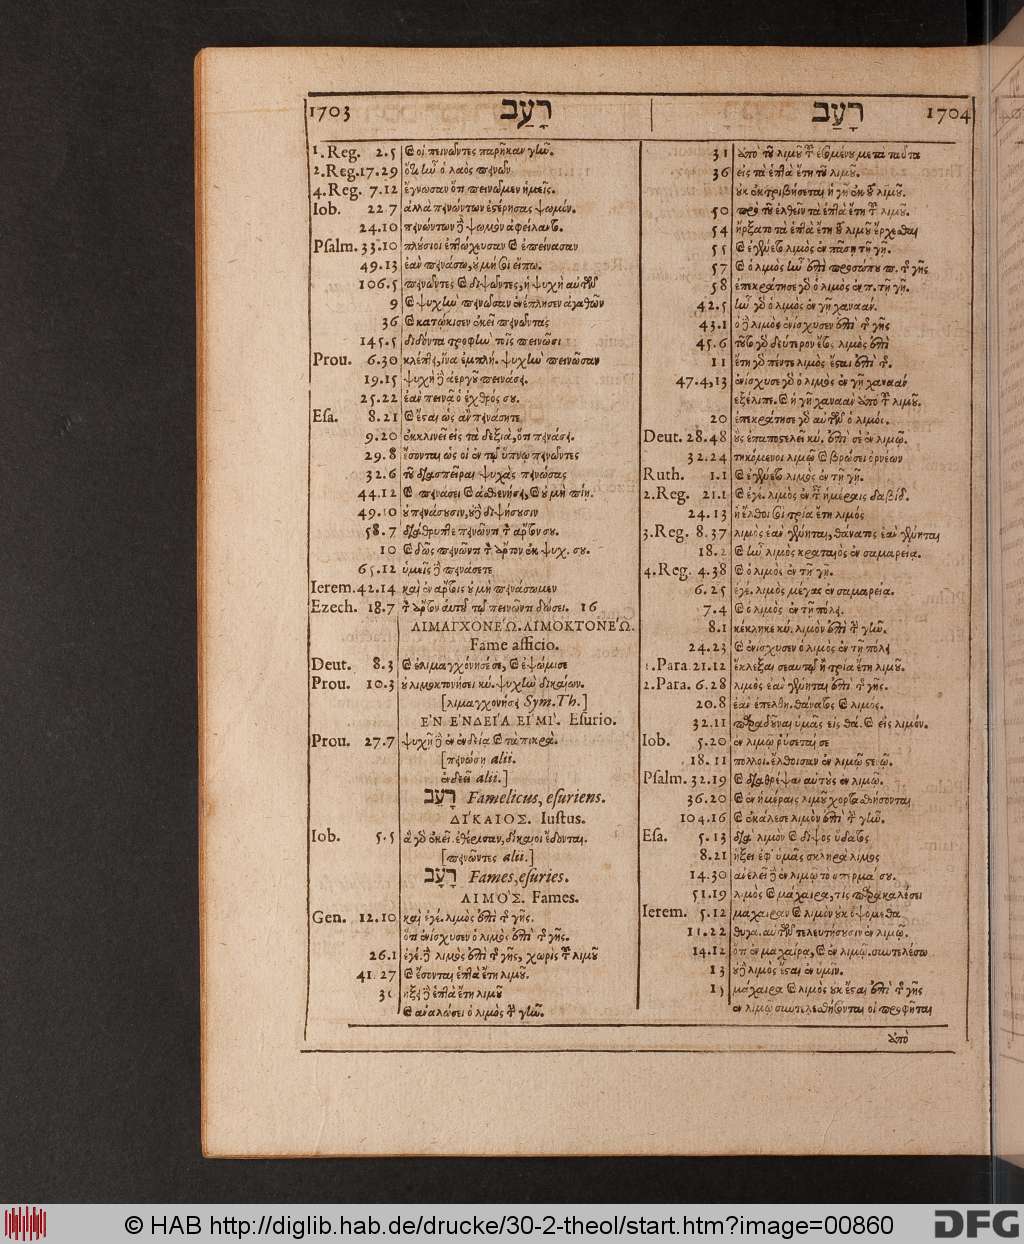 1703 רָעַב
1. Reg. 2.5 καὶ οἱ πεινῶντες παρῆκαν γῆν.
2. Reg. 17.29 ὅτι ἦν ὁ λαὸς πεινῶν
4. Reg. 7.12 ἔγνωσαν ὅτι πεινῶμεν ἡμεῖς.
Iob. 22.7 ἀλλὰ πεινώντων ἐστέρησας ψωμόν.
24.10 πεινώντων δὲ ψωμὸν ἀφείλαντο.
Psalm. 33.10 πλούσιοι ἐπτώχευσαν καὶ ἐπείνασαν
49.13 ἐὰν πεινάσω, οὐ μή σοι εἴπω.
106.5 πεινῶντες καὶ διψῶντες, ἡ ψυχὴ αὐτῶν
9 καὶ ψυχὴν πεινῶσαν ἐνέπλησεν ἀγαθῶν
36 καὶ κατῴκισεν ἐκεῖ πεινῶντας
145.5 διδόντα τροφὴν τοῖς πεινῶσι
Prou. 6.30 κλέπτει, ἵνα ἐμπλή. ψυχὴν πεινῶσαν
19.15 ψυχὴ δὲ ἀεργοῦ πεινάσει.
25.22 ἐὰν πεινᾷ ὁ ἐχθρός σου.
Esa. 8.21 καὶ ἔσται ὡς ἂν πεινάσητε
9.20 ἐκκλινεῖ εἰς τὰ δεξιὰ, ὅτι πεινάσει.
29.8 ἔσονται ὡς οἱ ἐν τῷ ὕπνῳ πεινῶντες
32.6 τοῦ διασπεῖραι ψυχὰς πεινώσας
44.12 καὶ πεινάσει καὶ ἀσθενήσει, καὶ οὐ μὴ πίῃ.
49.10 οὐ πεινάσουσιν, οὐδὲ διψήσουσιν
58.7 διάθρυπτε πεινῶντι τὸν ἄρτον σου.
10 καὶ δῷς πεινῶντι τὸν ἄρτον ἐκ ψυχ. σου.
65.12 ὑμεῖς δὲ πεινάσετε
Ierem. 42.14 καὶ ἐν ἄρτοις οὐ μὴ πεινάσωμεν
Ezech. 18.7 τὸν ἄρτον αὐτοῦ τῷ πεινῶντι δώσει. 16
ΛΙΜΑΓΧΟΝΕΏ. ΛΙΜΟΚΤΟΝΕΏ.
Fame afficio.
Deut. 8.3 καὶ ἐλιμαγχόνησέ σε, καὶ ἐψώμισε
Prou. 10.3 οὐ λιμοκτονήσει κύ. ψυχὴν δικαίων.
[λιμαγχονήσει Sym. Th.]
ἘΝ ἘΝΔΕΊΑ ΕἸΜΊ. Esurio.
Prou. 27.7 ψυχῇ δὲ ἐν ἐνδείᾳ καὶ τὰ πικρὰ.
[πεινώσῃ alii.
ἐνδεεῖ alii.]
רָעֵב Famelicus, esuriens.
ΔΊΚΑΙΟΣ. Iustus.
Iob. 5.5 ἃ γὰρ ἐκεῖ. ἐθέρισαν, δίκαιοι ἔδονται.
[πεινῶντες alii.]
רָעָב Fames, esuries.
ΛΙΜΌΣ. Fames.
Gen. 12.10 καὶ ἐγέ. λιμὸς ἐπὶ τῆς γῆς.
ὅτι ἐνίσχυσεν ὁ λιμὸς ἐπὶ τῆς γῆς.
26.1 ἐγέ. δὲ λιμὸς ἐπὶ τῆς γῆς, χωρὶς τοῦ λιμοῦ
41.27 καὶ ἔσονται ἑπτὰ ἔτη λιμοῦ.
30 ἥξει δὲ ἑπτὰ ἔτη λιμοῦ
καὶ ἀναλώσει ὁ λιμὸς τὴν γῆν.
רָעַב 1704
31 ἀπὸ τοῦ λιμοῦ τοῦ ἐσομένου μετὰ ταῦτα
36 εἰς τὰ ἑπτὰ ἔτη τοῦ λιμοῦ.
οὐκ ἐκτριβήσεται ἡ γῆ ἐν τῷ λιμοῦ.
50 πρὸ τοῦ ἐλθεῖν τὰ ἑπτὰ ἔτη τοῦ λιμοῦ.
54 ἤρξατο τὰ ἑπτὰ ἔτη τοῦ λιμοῦ ἔρχεσθαι
55 καὶ ἐγένετο λιμὸς ἐν πάσῃ τῇ γῇ.
57 καὶ ὁ λιμὸς ἦν ἐπὶ προσώπου π. τῆς γῆς
58 ἐπεκράτησε γὰρ ὁ λιμὸς ἐν π. τῇ γῇ.
42.5 ἦν γὰρ ὁ λιμὸς ἐν γῇ χαναάν.
43.1 ὁ δὲ λιμὸς ἐνίσχυσεν ἐπὶ τῆς γῆς
45.6 τοῦτο γὰρ δεύτερον ἔτος λιμὸς ἐπὶ
11 ἔτι γὰρ πέντε λιμὸς ἔσται ἐπὶ τῆς.
47.4, 13 ἐνίσχυσε γὰρ ὁ λιμὸς ἐν γῇ χαναάν
ἐξέλιπε. καὶ ἡ γῆ χαναὰν ἀπὸ τοῦ λιμοῦ.
20 ἐπεκράτησε γὰρ αὐτῶν ὁ λιμός.
Deut. 28.48 οὓς ἐπαποστελεῖ κύ. ἐπὶ σὲ ἐν λιμῷ.
32.24 τηκόμενοι λιμῷ καὶ βρώσει ὀρνέων
Ruth. 1.1 καὶ ἐγένετο λιμὸς ἐν τῇ γῇ.
2. Reg. 21.1 καὶ ἐγέ. λιμὸς ἐν ταῖς ἡμέραις δαβίδ.
24.13 ἢ ἔλθοι σοι τρία ἔτη λιμός
3. Reg. 8.37 λιμὸς ἐὰν γένηται, θάνατος ἐὰν γένηται
18.2 καὶ ἦν λιμὸς κραταιὸς ἐν σαμαρείᾳ.
4. Reg. 4.38 καὶ ὁ λιμὸς ἐν τῇ γῇ.
6.25 ἐγέ. λιμὸς μέγας ἐν σαμαρείᾳ.
7.4 καὶ ὁ λιμὸς ἐν τῇ πόλει.
8.1 κέκληκε κύ. λιμὸν ἐπὶ τὴν γῆν.
24.23 καὶ ἐνίσχυσεν ὁ λιμὸς ἐν τῇ πόλει
1. Para. 21.12 ἔκλεξαι σεαυτῷ ἢ τρία ἔτη λιμοῦ.
2. Para. 6.28 λιμὸς ἐὰν γένηται ἐπὶ τῆς γῆς.
20.8 ἐὰν ἐπέλθῃ. θάνατος καὶ λιμὸς.
32.11 παραδοῦναι ὑμᾶς εἰς θά. καὶ εἰς λιμόν.
Iob. 5.20 ἐν λιμῷ ῥύσεταί σε
18.11 πολλοι. ἔλθοισαν ἐν λιμῷ στενῷ.
Psalm. 32.19 καὶ διαθρέψαι αὐτοὺς ἐν λιμῷ.
36.20 καὶ ἐν ἡμέραις λιμοῦ χορτασθήσονται
104.16 καὶ ἐκάλεσε λιμὸν ἐπὶ τὴν γῆν.
Esa. 5.13 διὰ λιμὸν καὶ δίψος ὕδατος
8.21 ἥξει ἐφ' ὑμᾶς σκληρὰ λιμὸς
14.30 ἀνελεῖ δὲ ἐν λιμῷ τὸ σπέρμα σου.
51.19 λιμὸς καὶ μάχαιρα, τίς παρακαλέσει
Ierem. 5.12 μάχαιραν καὶ λιμὸν οὐκ ὀψόμεθα
11.22 θυγα. αὐτῶν τελευτήσουσιν ἐν λιμῷ.
14.12 ὅτι ἐν μαχαίρᾳ, καὶ ἐν λιμῷ. συντελέσω
13 οὐδὲ λιμὸς ἔσται ἐν ὑμῖν.
15 μάχαιρα καὶ λιμὸς οὐκ ἔσται ἐπὶ τῆς γῆς
ἐν λιμῷ συντελεσθήσονται οἱ προφῆται
ἀπὸ
© HAB http://diglib.hab.de/drucke/30-2-theol/start.htm?image=00860
DFG